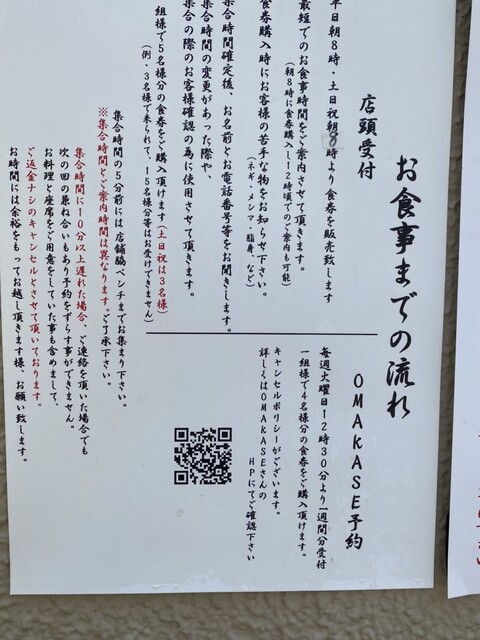 お食事までの流れ
店頭受付
平日朝8時・土日祝朝8時より食券を販売致します
最短でのお食事時間をご案内させて頂きます。
(朝8時に食券購入し12時頃でのご案内も可能)
食券購入時にお客様の苦手な物をお知らせ下さい。
(ネギ・メンマ・脂身、など)
集合時間確定後、お名前とお電話番号等をお聞きします。
集合時間の変更があった際や、
集合の際のお客様確認の為に使用させて頂きます。
組様で5名様分の食券をご購入頂けます(土日祝は3名様)
(例・3名様で来られて、15名様分等はお受けできません)
集合時間の5分前には店舗脇ベンチまでお集まり下さい。
※集合時間とご案内時間は異なります。ご了承下さい。
集合時間に10分以上遅れた場合、ご連絡を頂いた場合でも
次の回の兼ね合いもあり予約をずらす事ができません。
お料理と座席をご用意をしていた事も含めまして、
ご返金ナシのキャンセルとさせて頂いております。
お時間には余裕をもってお越し頂きます様、お願い致します。
OMAKASE予約
毎週火曜日12時30分より一週間分受付
一組様で4名様分の食券をご購入頂けます。
キャンセルポリシーがございます。
詳しくはOMAKASEさんの
HPにてご確認下さい